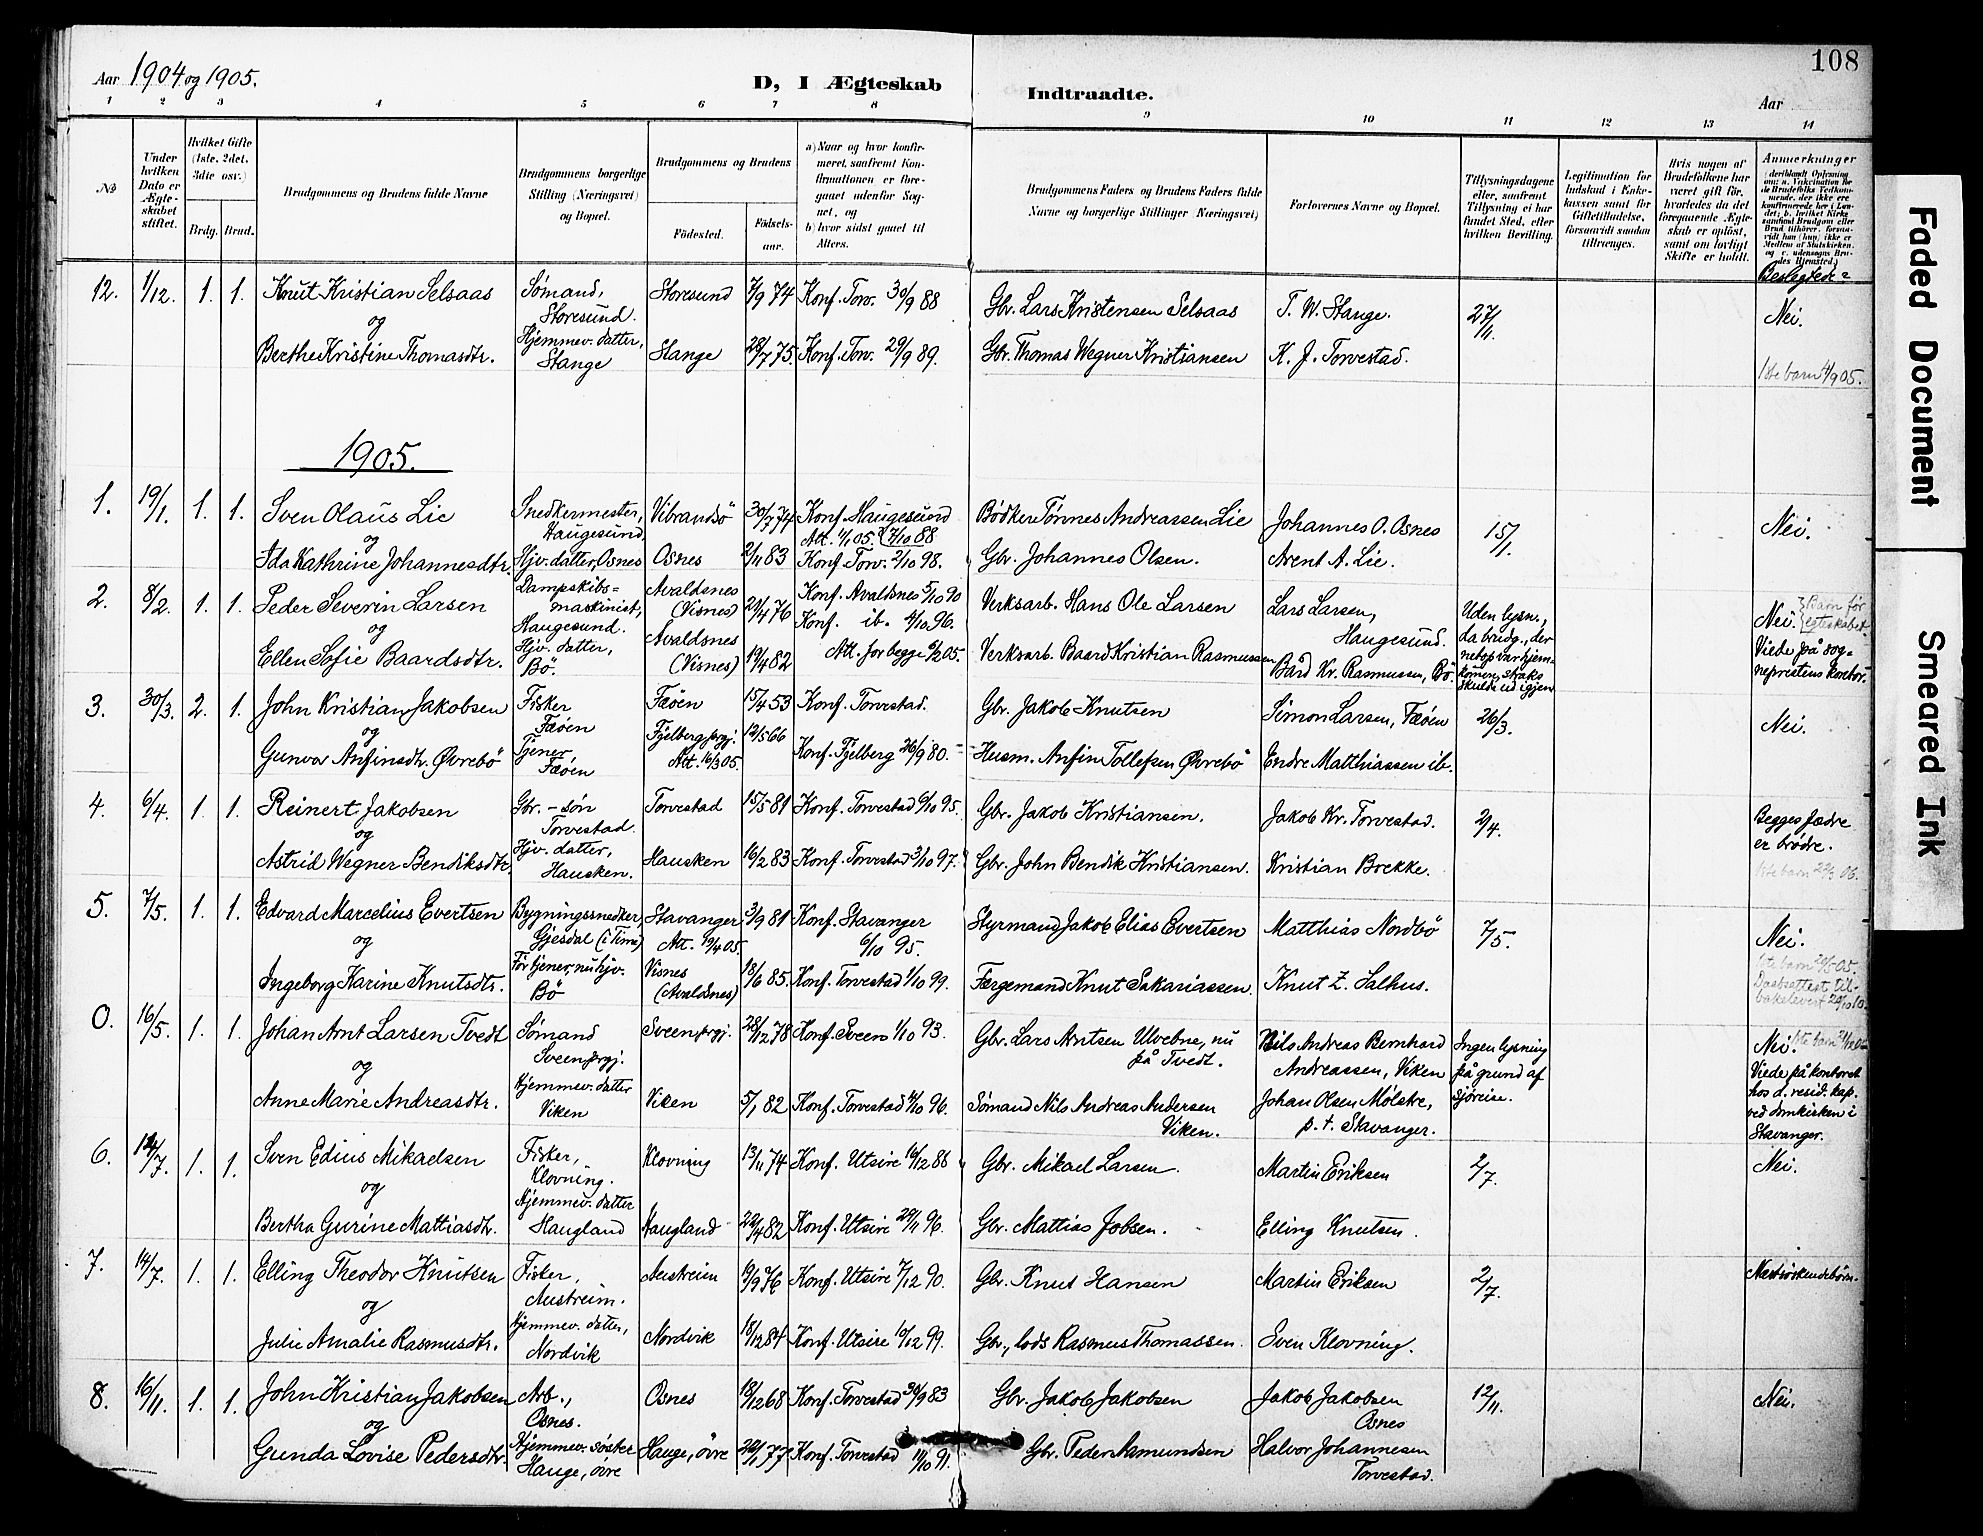 108
Aar 1904 og 1905.
D, I Ægteskab Indtraadte.
Aar
1 2 3 4 5 6 7 8 9 10 11 12 13 14
No
Under hvilken Dato er Ægteskabet stiftet.
Hvilket Gifte (1ste, 2det, 3die osv.)
Brdg. Brud.
Brudgommens og Brudens fulde Navne
Brudgommens borgerlige Stilling (Næringsvei) og Bopæl.
Brudgommens og Brudens
Födested. Födselsaar.
a) Naar og hvor konfirmeret, samfremt Konfirmationen er foregaaet udenfor Sognet, og
b) hvor sidst gaaet til Alters.
Brudgommens Faders og Brudens Faders fulde Navne og borgerlige Stillinger (Næringsvei)
Forlovernes Navne og Bopæl.
Tillysningsdagene eller, saafremt Tillysning ei har fundet Sted, efter hvilken Bevilling.
Legitimation for Indskud i Enkekassen samt for Giftetilladelse, forsaavidt saadan tiltrænges.
Hvis nogen af Brudefolkene har været gift før, hvorledes da det foregaaende Ægteskab er opløst, samt om lovligt Skifte er holdt.
Anmerkninger
Beslegtede?
12. 1/12. 1. 1. Knut Kristian Selsaas Sømand, Storesund. Storesund 7/9 74 Konf. Torv. 30/9 88 Gbr. Lars Kristensen Selsaas T. W. Stange. 27/11. Nei.
og
Berthe Kristine Thomasdtr. Hjemmev. datter, Stange Stange 28/7 75. Konf. Torv. 29/9 89. Gbr. Thomas Wegner Kristiansen K. J. Torvestad.
1ste barn 4/9 05.
1905.
1. 19/1. 1. 1. Sven Olaus Lie Snedkermester, Haugesund, Vibrandsö 30/7 74 Konf. Haugesund 7/10 88 Att. 11/1 05. Bödker Tönnes Andreassen Lie Johannes O. Osnes 15/1. Nei.
og
Ida Kathrine Johannesdtr. Hjv. datter, Osnes Osnes 2/11 83 Konf. Torv. 2/10 98. Gbr. Johannes Olsen. Arent A. Lie.
2. 8/2. 1. 1. Peder Severin Larsen Dampskibsmaskinist, Haugesund. Avaldsnes (Visnes) 21/4 76 Konf. Avaldsnes 5/10 90 Verksarb. Hans Ole Larsen Lars Larsen, Haugesund. Uden lysn., da brudg., der netop var hjemkommen, straks skulde ud igjen Nei. Barn för egteskabet.
og
Ellen Sofie Baardsdtr. Hjv. datter, Bö. Avaldsnes (Visnes) 19/4 82 Konf. ib. 4/10 96. Att. for begge 6/2 05. Verksarb. Baard Kristian Rasmussen Bård Kr. Rasmussen, Bö. Viede på sogneprestens kontor.
3. 30/3. 2. 1. John Kristian Jakobsen Fisker Fæøen Fæøen 15/4 53 Konf. Torvestad. Gbr. Jakob Knutsen Simon Larsen, Fæøen 26/3. Nei.
og
Gunvor Anfinsdtr. Øvrebö Tjener Fæøen Fjelberg prgj. Att. 16/3 05. 12/5 66 Konf. Fjelberg 26/9 80. Husm. Anfin Tollefsen Øvrebö Endre Matthiassen ib.
4. 6/4. 1. 1. Reinert Jakobsen Gbr.-søn Torvestad. Torvestad 15/5 81 Konf. Torvestad 6/10 95. Gbr. Jakob Kristiansen. Jakob Kr. Torvestad. 2/4. Begges fædre er brödre.
og
Astrid Wegner Bendiksdtr. Hjv. datter, Hausken. Hausken 16/2 83 Konf. Torvestad 3/10 97. Gbr. John Bendik Kristiansen. Kristian Brekke. 1ste barn
5. 7/5. 1. 1. Edvard Marcelius Evertsen Bygningssnedker, Gjesdal (i Time) Stavanger Att. 19/4 05. 3/9 81 Konf. Stavanger 6/10 95. Styrmand Jakob Elias Evertsen Matthias Nordbö 7/5. Nei.
og
Ingeborg Karine Knutsdtr. För tjener, nu hjv. Bö Visnes (Avaldsnes) 18/6 85. Konf. Torvestad 1/10 99. Færgemand Knut Sakariassen. Knut Z. Salhus. 1ste barn Daabsattest tilbakelevert
0. 16/5. 1. 1. Johan Arnt Larsen Tvedt Sømand Sveen prgj. Sveen prgj. 28/12 78 Konf. Sveen 1/10 93. Gbr. Lars Arntsen Ulvebne, nu på Tvedt. Nils Andreas Bernhard Andreassen, Viken Ingen lysning på grund af sjöreise. Nei. 1ste barn
og
Anne Marie Andreasdtr. Hjemmev. datter Viken Viken 5/1 82 Konf. Torvestad 4/10 96. Sömand Nils Andreas Andersen Viken. Johan Olsen Mølstre, p. t. Stavanger. Viede på kontoret hos d. resid. kap. ved domkirken i Stavanger.
6. 14/7. 1. 1. Sven Edius Mikaelsen Fisker, Klovning. Klovning 13/11 74 Konf. Utsire 16/12 88 Gbr. Mikael Larsen. Martin Eriksen 2/7. Nei.
og
Bertha Gurine Mattiasdtr. Hjemmev. datter Haugland Haugland 22/4 82 Konf. Utsire 22/11 96. Gbr. Mattias Jobsen. Elling Knutsen.
7. 14/7. 1. 1. Elling Theodor Knutsen Fisker, Austreim. Austreim 19/9 76 Konf. Utsire 7/12 90. Gbr. Knut Hansen Martin Eriksen 2/7. Næstsöskendebörn.
og
Julie Amalie Rasmusdtr. Hjemmev. datter, Nordvik Nordvik 18/12 84 Konf. Utsire 10/12 99. Gbr., lods Rasmus Thomassen. Sven Klovning.
8. 16/11. 1. 1. John Kristian Jakobsen Arb., Osnes. Osnes 18/12 68 Konf. Torvestad 30/9 83 Gbr. Jakob Jakobsen Jakob Jakobsen Osnes 12/11. Nei.
og
Gunda Lovise Pedersdtr. Hjemmev. søster Hauge, övre Hauge, övre 22/1 77 Konf. Torvestad 11/10 91. Gbr. Peder Asmundsen Halvor Johannesen Torvestad.
Faded Document
Smeared Ink